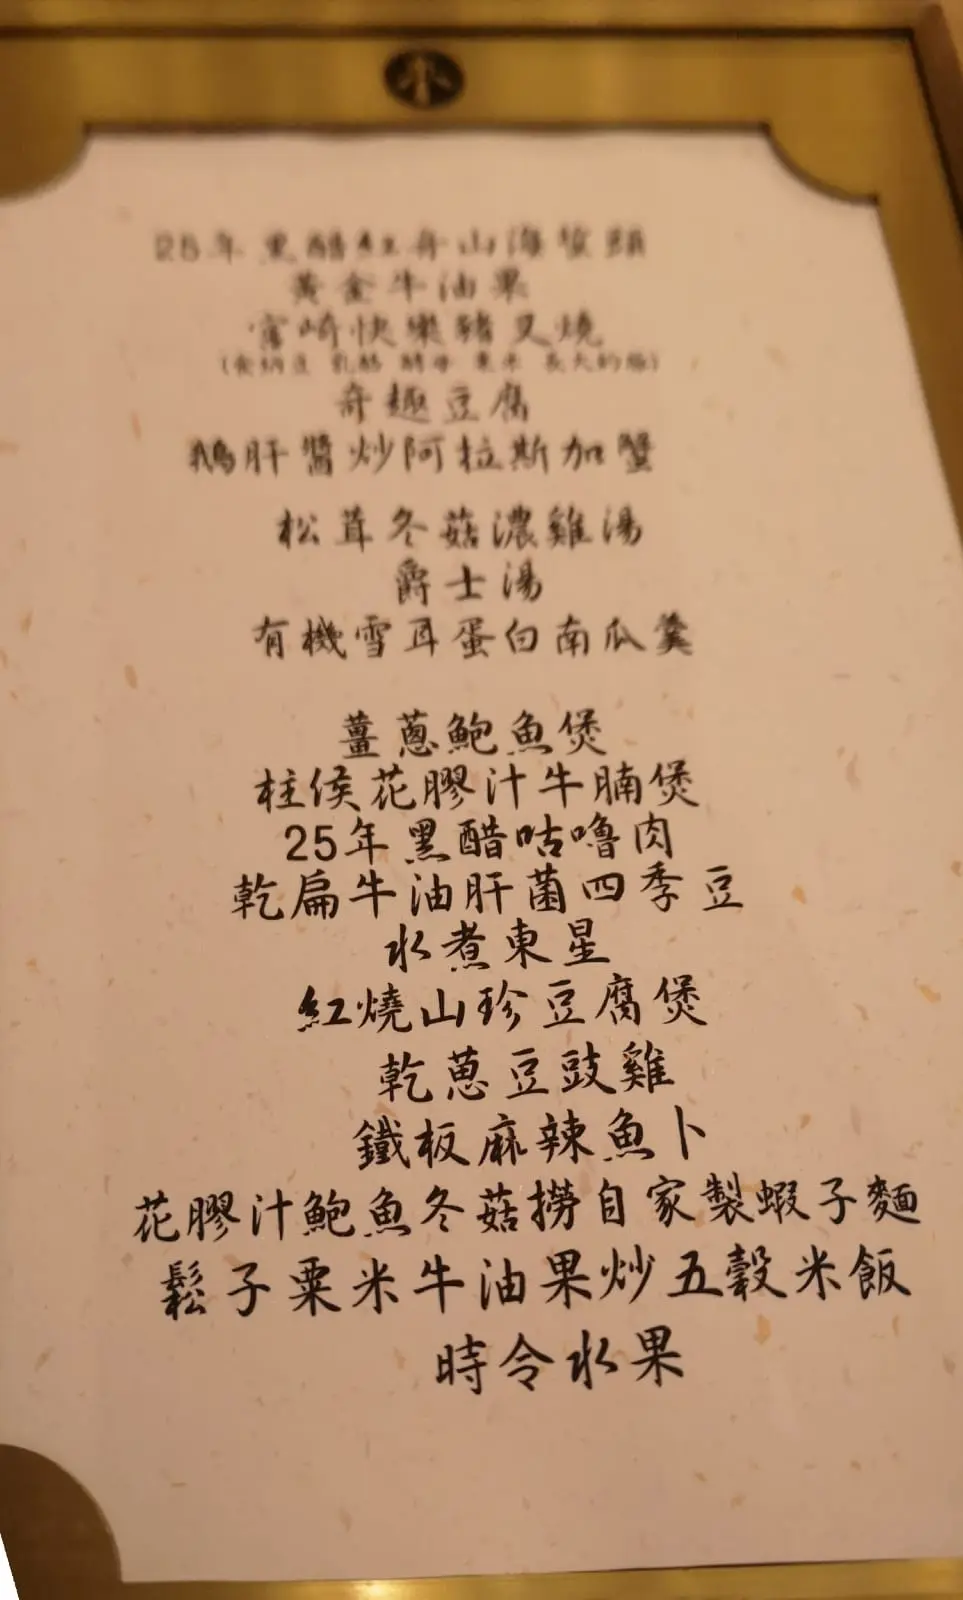 25年黑醋紅舟山海蜇頭
黃金牛油果
宮崎快樂豬叉燒
(食納豆 乳酪 酵母 粟米 長大的豬)
奇趣豆腐
鵝肝醬炒阿拉斯加蟹
松茸冬菇濃雞湯
爵士湯
有機雪耳蛋白南瓜羹
薑蔥鮑魚煲
柱侯花膠汁牛腩煲
25年黑醋咕嚕肉
乾扁牛油肝菌四季豆
水煮東星
紅燒山珍豆腐煲
乾蔥豆豉雞
鐵板麻辣魚卜
花膠汁鮑魚冬菇撈自家製蝦子麵
鬆子粟米牛油果炒五穀米飯
時令水果